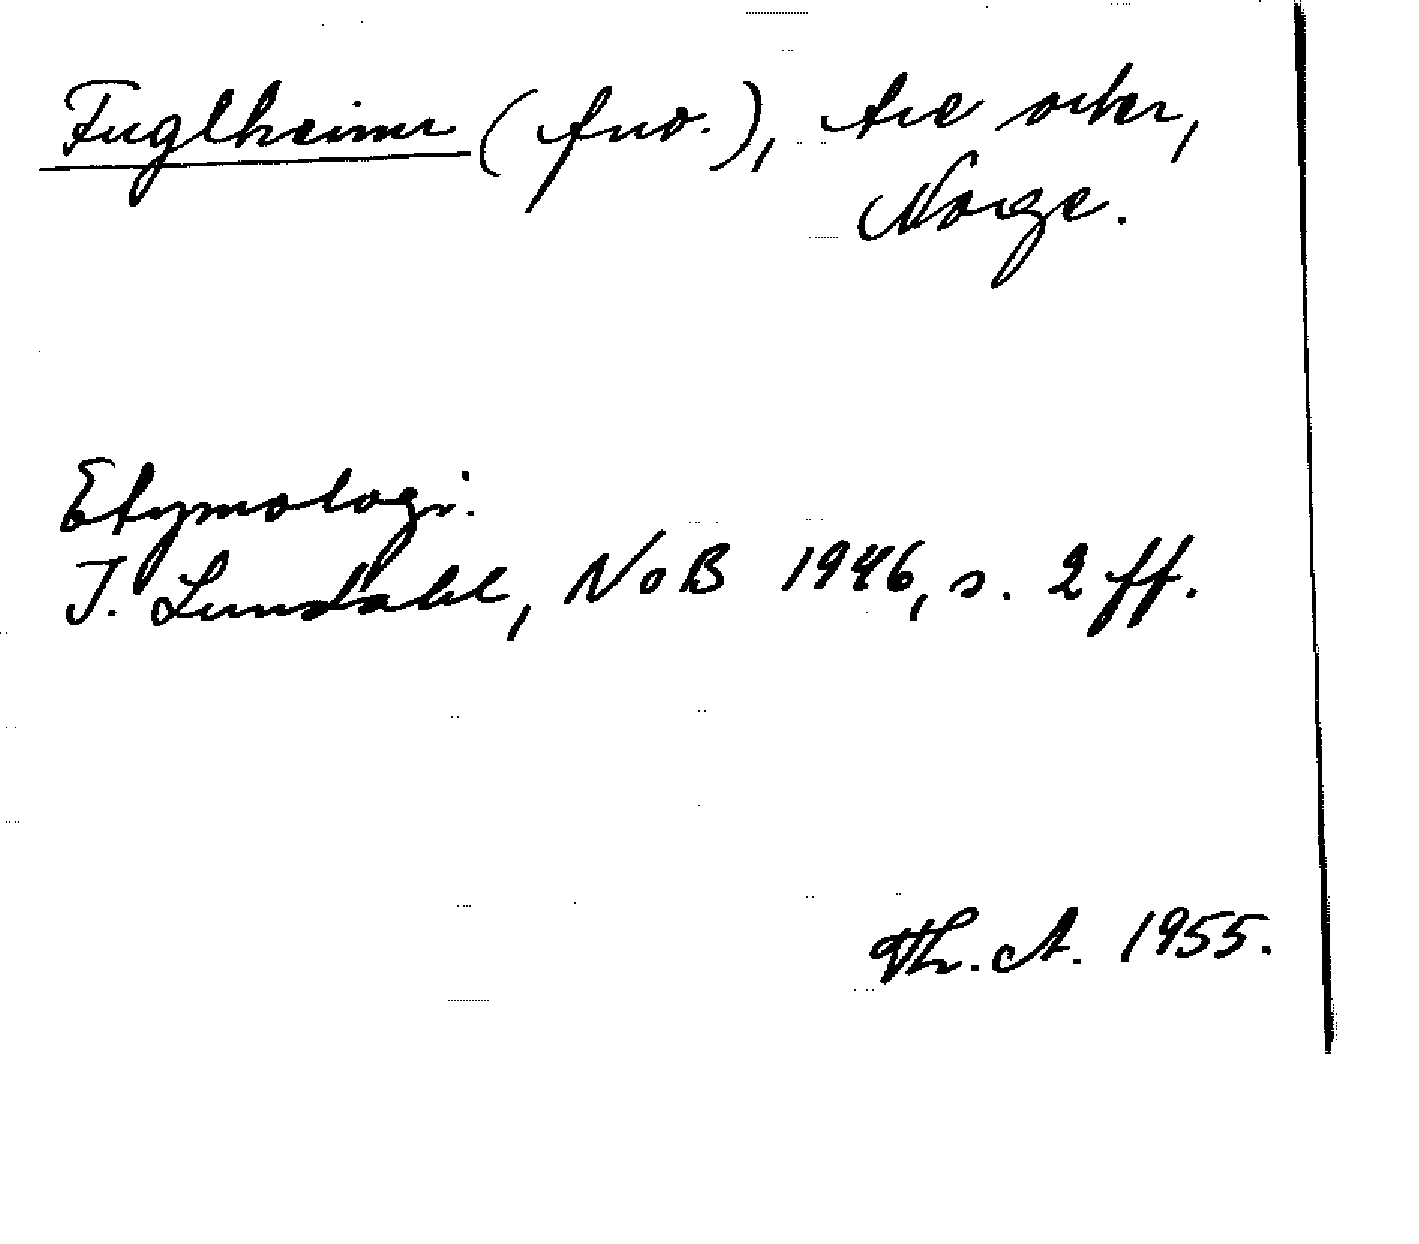 Fuglheimr (fno.), tre orter,
Norge.
Etymologi.
I. Lundahl, NoB 1946, s. 2 ff.
Th. A. 1955.